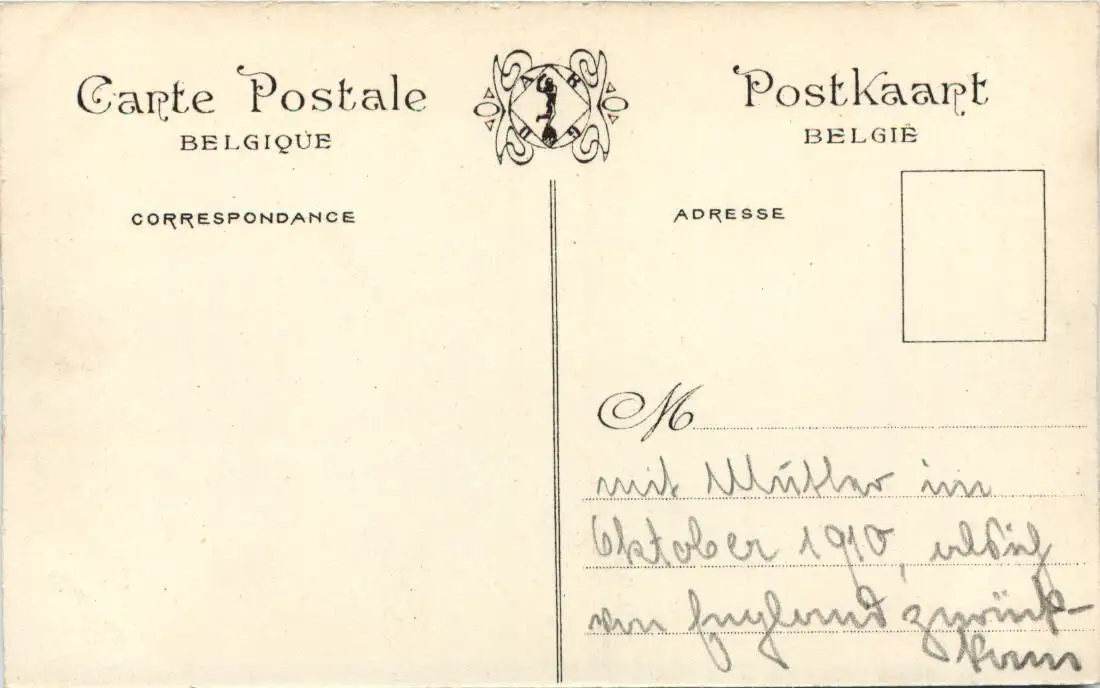 Carte Postale
BELGIQUE
A B
D G
Postkaart
BELGIË
CORRESPONDANCE
ADRESSE
M
mit Mutter im
Oktober 1910, als ich
von England zurück-
kam